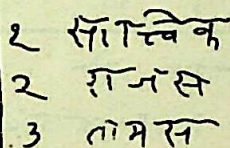 १ सात्त्विक
२ राजस
३ तामस